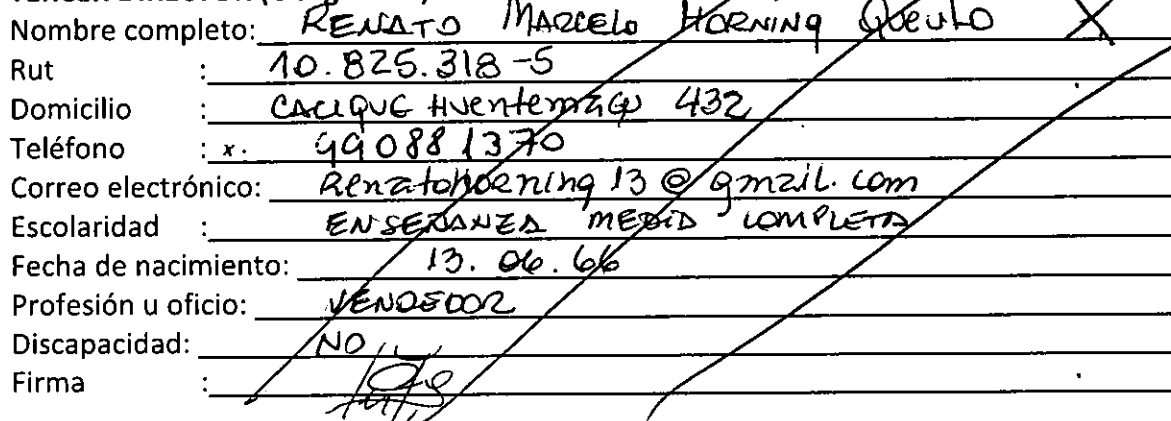 Nombre completo: RENATO MARCELO HORNING X
Rut : 10.825.318-5
Domicilio : CACIQUE 432
Teléfono : x. 990881370
Correo electrónico: Renatohorning13@gmail.com
Escolaridad : ENSEÑANZA MEDIA COMPLETA
Fecha de nacimiento: 13.06.66
Profesión u oficio: VENDEDOR
Discapacidad: NO
Firma :